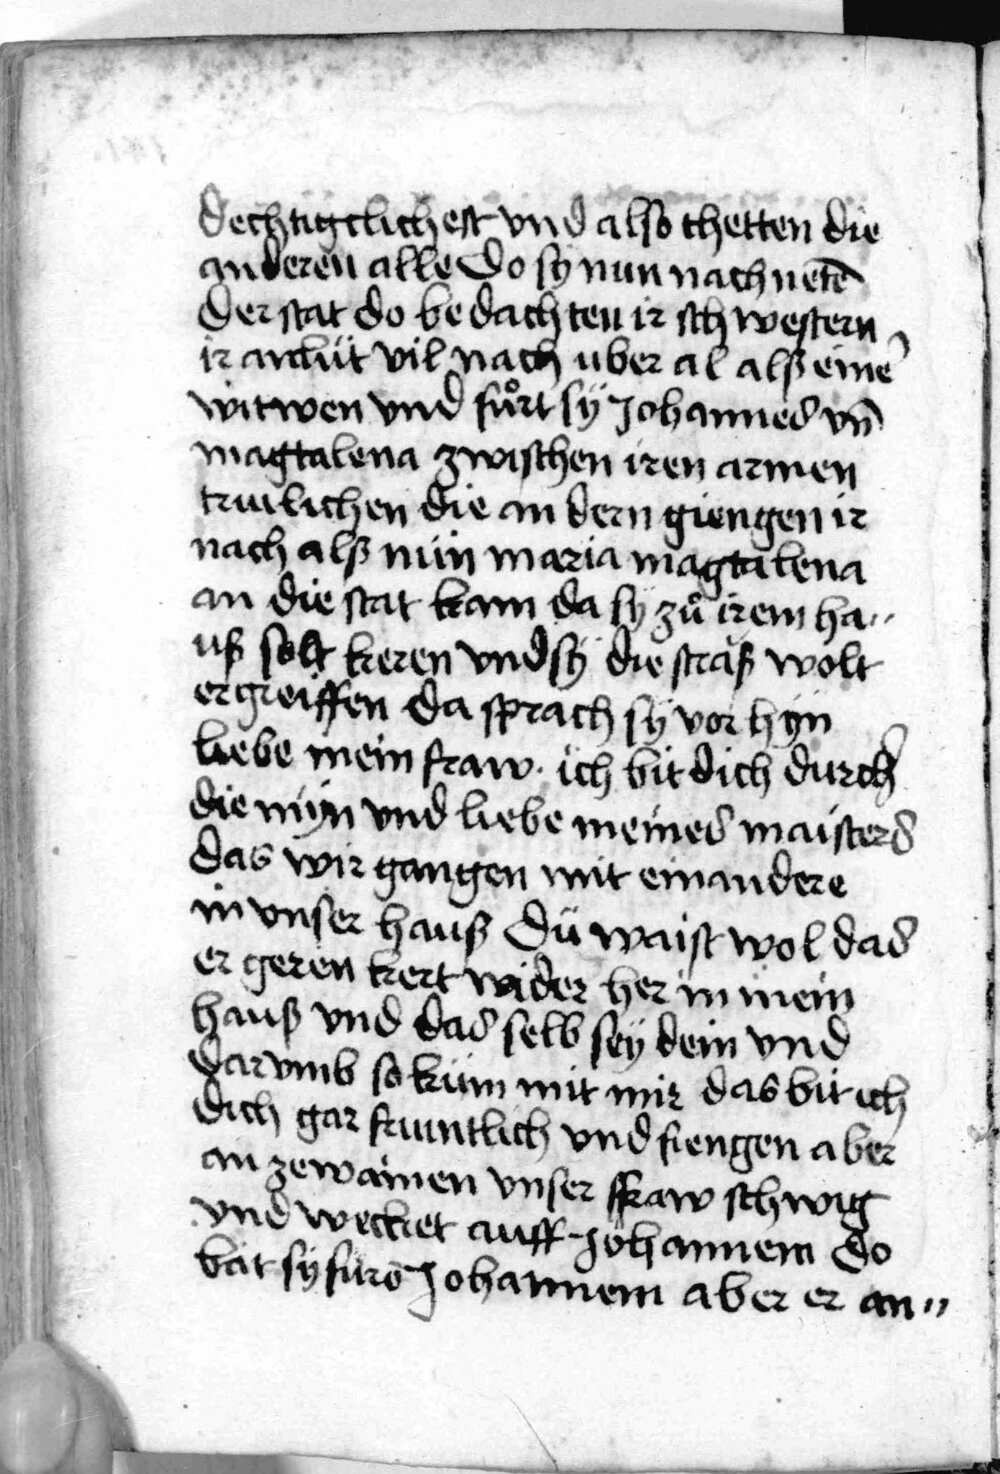 dechtigclichest vnd also thetten die
anderen alle Do sy nun nachnetē
der stat do bedachten ir schwestern
ir antlüt vil nach uber al alß einē
witwen vnd fuͦrt sÿ Johannes vn̄
magtalena zwischen iren armen
trulichen die andern giengen ir
nach alß nün maria magtalena
an die stat kam da sy zuͦ irem ha„
uß solt keren vnd sÿ die straß wolt
ergreiffen da sprach sÿ vor hÿn
liebe mein fraw · ich bit dich durch
die mÿn vnd liebe meines maisters
das wir gangen mit einandere
in vnser hauß Dü waist wol das
er geren kert wider her in mein
hauß vnd das selb seÿ dein vnd
dar vmb so küm mit mir das bit ich
dich gar fruntlich vnd fiengen aber
an ze wainen vnser fraw schwig
vnd wecket auff Johannem do
bat sy Johannem aber er an„